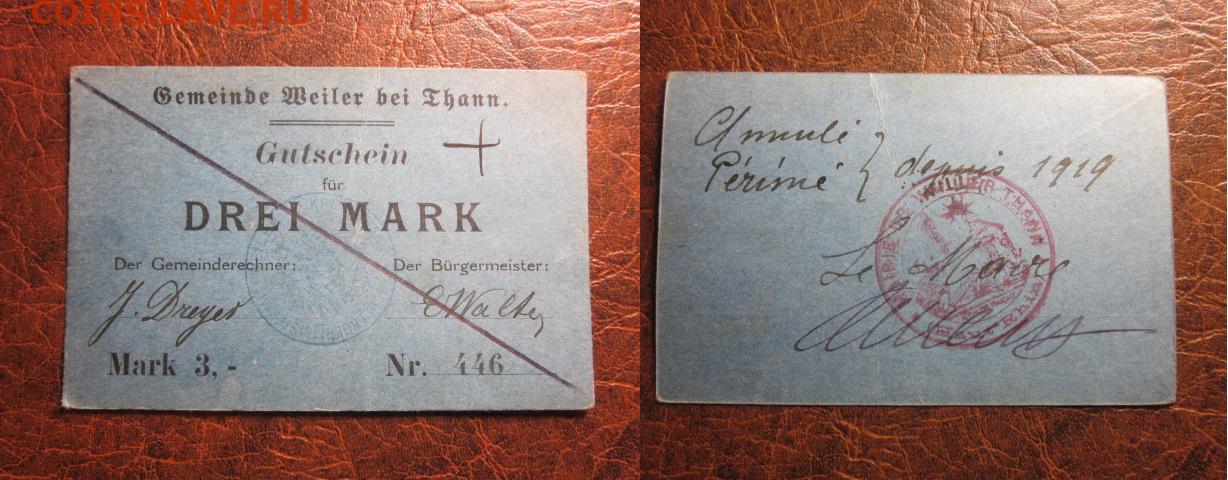 COINS.LAVE.RU
Gemeinde Weiler bei Thann.
Gutschein
für
DREI MARK
Der Gemeinderechner: Der Bürgermeister:
J. Dreyer E Walter
Mark 3,- Nr. 446
Annulé } depuis 1919
Périmé
WILLER-THANN
Le Maire